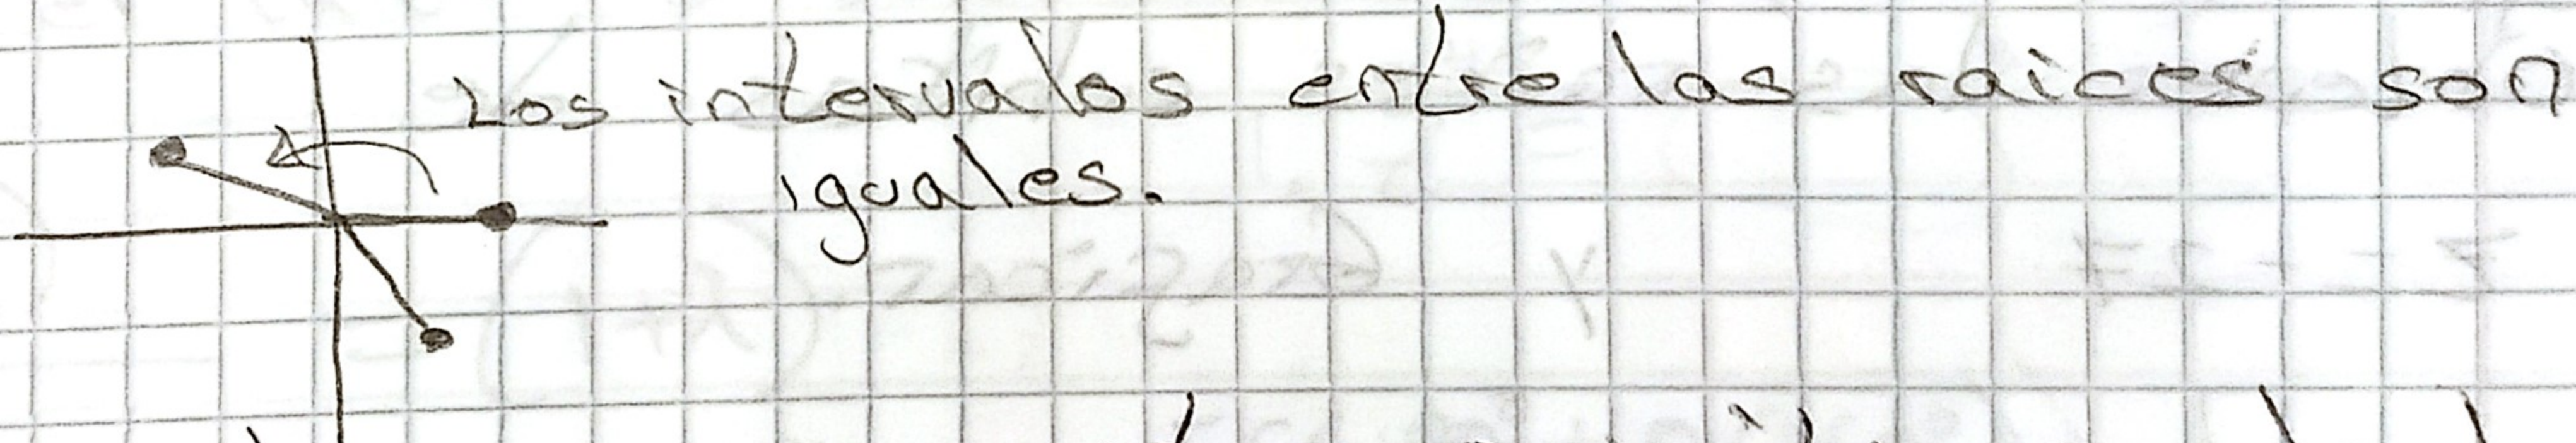 Los intervalos entre las raices son
iguales.